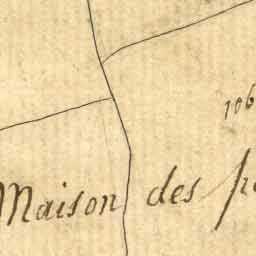 106
Maison des